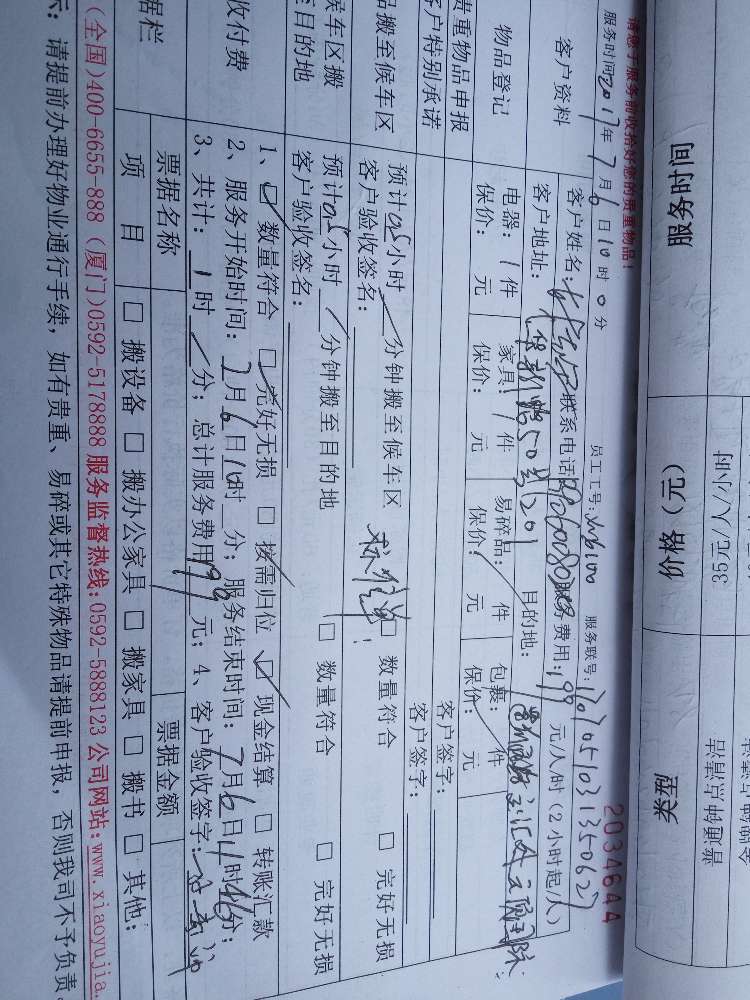 请您于服务前收拾好您的贵重物品！
服务时间2017年7月6日10时0分 员工工号： 服务联号：
2034644
客户资料
客户姓名： 联系电话 服务费用：198元/人/时(2小时起/人)
客户地址： 50号201 目的地：
物品登记
电器：1件 家具：1件 易碎品： 件 包裹： 件
保价： 元 保价： 元 保价： 元 保价： 元
贵重物品申报 客户签字：
客户特别承诺 客户签字：
品搬至候车区
预计0.5小时 分钟搬至候车区 □ 数量符合 □ 完好无损
客户验收签名：
候车区搬
至目的地
预计0.5小时 分钟搬至目的地 □ 数量符合 □ 完好无损
客户验收签名：
收付费
1、☑ 数量符合 □ 完好无损 □ 按需归位 ☑ 现金结算 □ 转账汇款
2、服务开始时间：7月6日10时 分；服务结束时间：7月6日 时 分；
3、共计：1时 分；总计服务费用198元；4、客户验收签字：
据栏
票据名称 票据金额
项 目 □ 搬设备 □ 搬办公家具 □ 搬家具 □ 搬书 □ 其他：
(全国)400-6655-888 (厦门)0592-5178888 服务监督热线:0592-5888123 公司网站:www.xiaoyujia.
示：请提前办理好物业通行手续，如有贵重、易碎或其它特殊物品请提前申报，否则我司不予负责。
服务时间 价格（元） 类型
35元/人/小时 普通钟点清洁